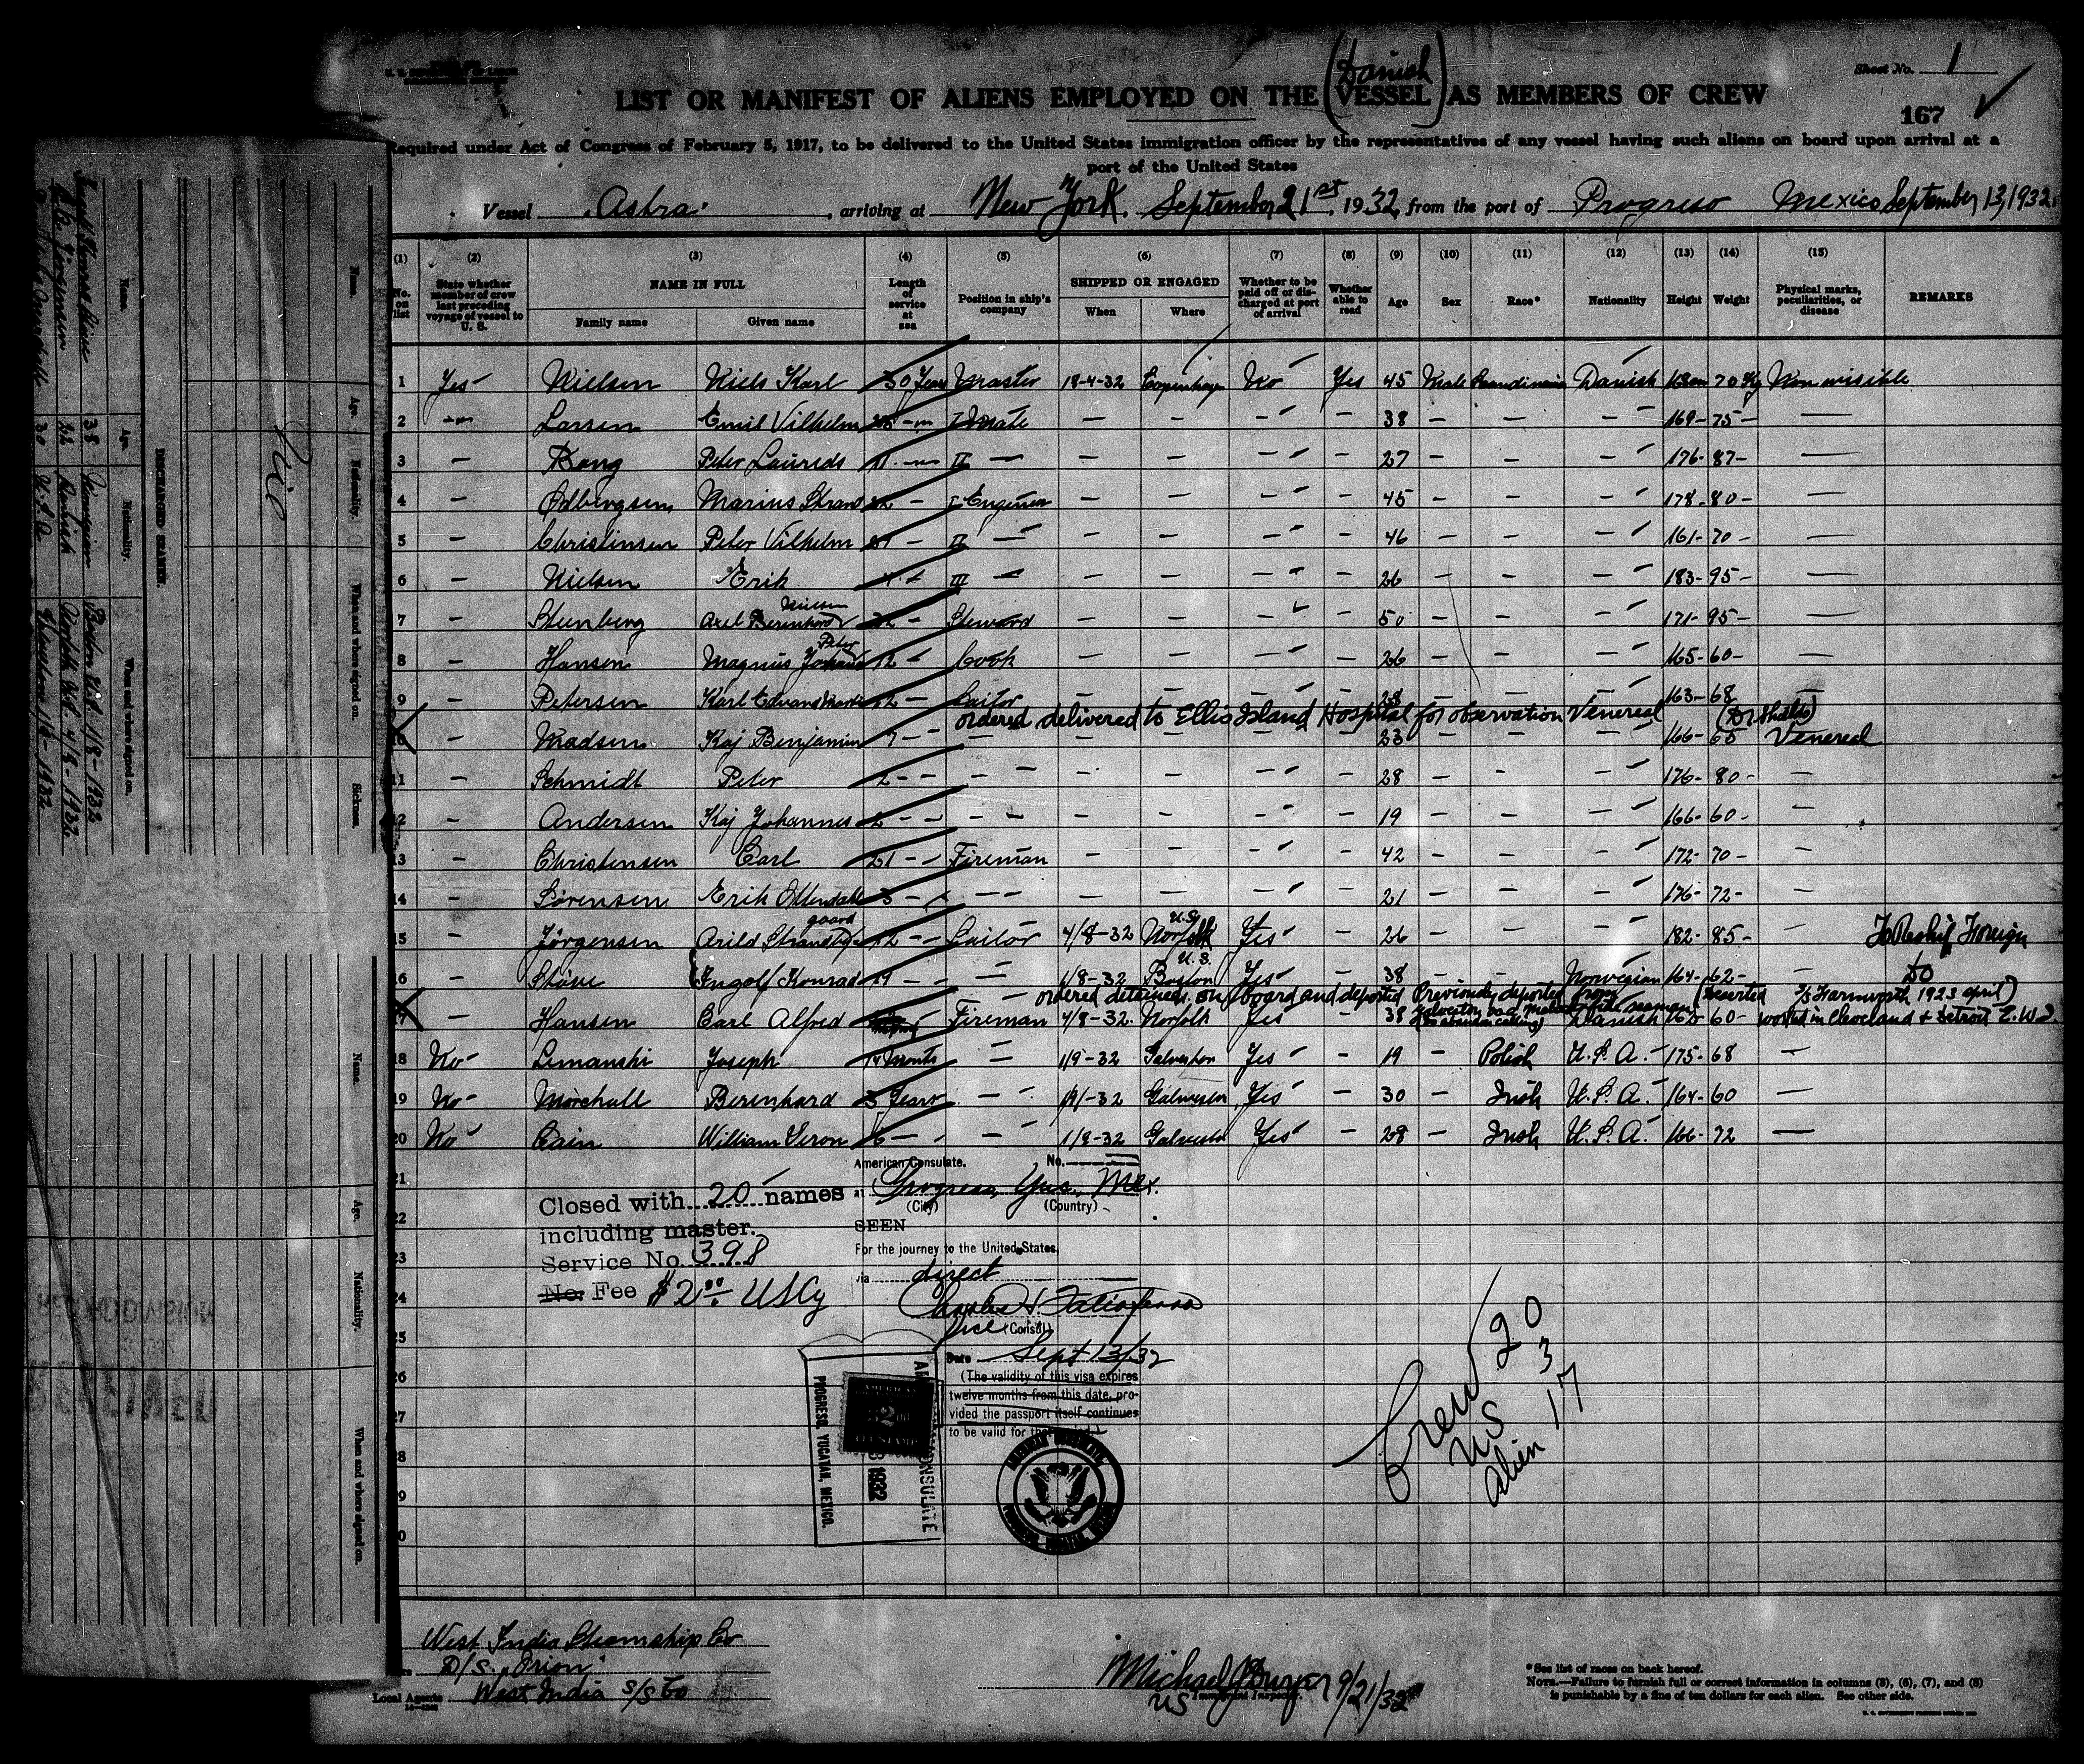 Sheet No. 1
(Danish)
LIST OR MANIFEST OF ALIENS EMPLOYED ON THE VESSEL AS MEMBERS OF CREW
167
Required under Act of Congress of February 5, 1917, to be delivered to the United States immigration officer by the representatives of any vessel having such aliens on board upon arrival at a
port of the United States
Vessel "Astra", arriving at New York. September 21st, 1932, from the port of Progreso Mexico September 13, 1932.
(1) (2) (3) (4) (5) (6) (7) (8) (9) (10) (11) (12) (13) (14) (15)
No. on list State whether member of crew last preceding voyage of vessel to U. S. NAME IN FULL Family name Given name Length of service at sea Position in ship's company SHIPPED OR ENGAGED When Where Whether to be paid off or discharged at port of arrival Whether able to read Age Sex Race* Nationality Height Weight Physical marks, peculiarities, or disease REMARKS
1 Yes Nielsen Niels Karl 30 Years Master 18-4-32 Copenhagen No Yes 45 Male Scandinavian Danish 168 cm 70 Kg Non visible
2 Larsen Emil Vilhelm I Mate 38 169 - 75 -
3 Bang Peter Laurids 11 II 27 176 - 87 -
4 Ødbergsen Marius I Engineer 45 178 - 80 -
5 Christensen Peter Vilhelm II 46 161 - 70 -
6 Nielsen Erik III 26 183 - 95 -
7 Steenberg Axel Berenhard Nielsen Steward 50 171 - 95 -
8 Hansen Magnus Johan Peter 12 Cook 26 165 - 60 -
9 Petersen Karl Edvard Martin 12 Sailor 28 163 - 68
ordered delivered to Ellis Island Hospital for observation Venereal
10 Madsen Kaj Benjamin 7 23 166 - 65 Venereal
11 Schmidt Peter 2 28 176 - 80 -
12 Andersen Kaj Johannes 2 19 166 - 60 -
13 Christensen Carl 21 Fireman 42 172 - 70 -
14 Sørensen Erik 3 21 176 - 72 -
15 Jørgensen Arild Strandbygaard 12 Sailor 4/8-32 Norfolk U.S. Yes 26 182 - 85 - To Reship Foreign
16 Støve Ingolf Konrad 19 1/8-32 Boston U.S. Yes 38 Norwegian 164 - 62 - do
ordered detained on board and deported Previously deported from Galveston (Deserted S/S Farnworth 1923 april)
17 Hansen Carl Alfred Fireman 4/8-32. Norfolk Yes 38 Danish 165 60 - worked in Cleveland & Detroit
18 No Lemanski Joseph Months 1/9-32 Galveston Yes 19 Polish U.S.A. 175 - 68
19 No Morchall Berenhard 3 Years 1/9-32 Galveston Yes 30 Irish U.S.A. 164 - 60
20 No Cain William 6 1/9-32 Galveston Yes 28 Irish U.S.A. 166 - 72
American Consulate. No.
at Progreso, Yuc., Mex.
(City) (Country)
Closed with 20 names
including master.
Service No. 398
No. Fee $2.00 USCy
SEEN
For the journey to the United States
via direct
Vice (Consul)
Date Sept 13/32
(The validity of this visa expires
twelve months from this date, provided the passport itself continues
to be valid for that
PROGRESO, YUCATAN, MEXICO.
AMERICAN CONSULATE
1932
Crew 20
US 3
alien 17
West India Steamship Co
D/S "Orion"
Local Agents West India S/S Co
Michael J. Dwyer 9/21/32
US Immigrant Inspector.
*See list of races on back hereof.
NOTE.—Failure to furnish full or correct information in columns (3), (5), (7), and (8)
is punishable by a fine of ten dollars for each alien. See other side.
DISCHARGED SEAMEN.
Name. Age. Nationality. When and where signed on.
Name. Age. Nationality. When and where signed on. Sickness.
Name. Age. Nationality. When and where signed on.